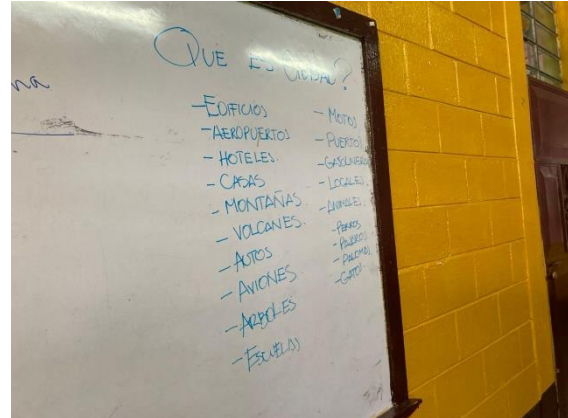 na
QUÉ ES CIUDAD?
- EDIFICIOS
- AEROPUERTOS
- HOTELES.
- CASAS
- MONTAÑAS.
- VOLCANES.
- AUTOS
- AVIONES
- ARBOLES
- ESCUELAS
- MOTOS
- PUERTOS
- GASOLINERAS
- LOCALES.
- ANIMALES.
- PERROS
- PAJAROS
- PALOMAS
- GATOS